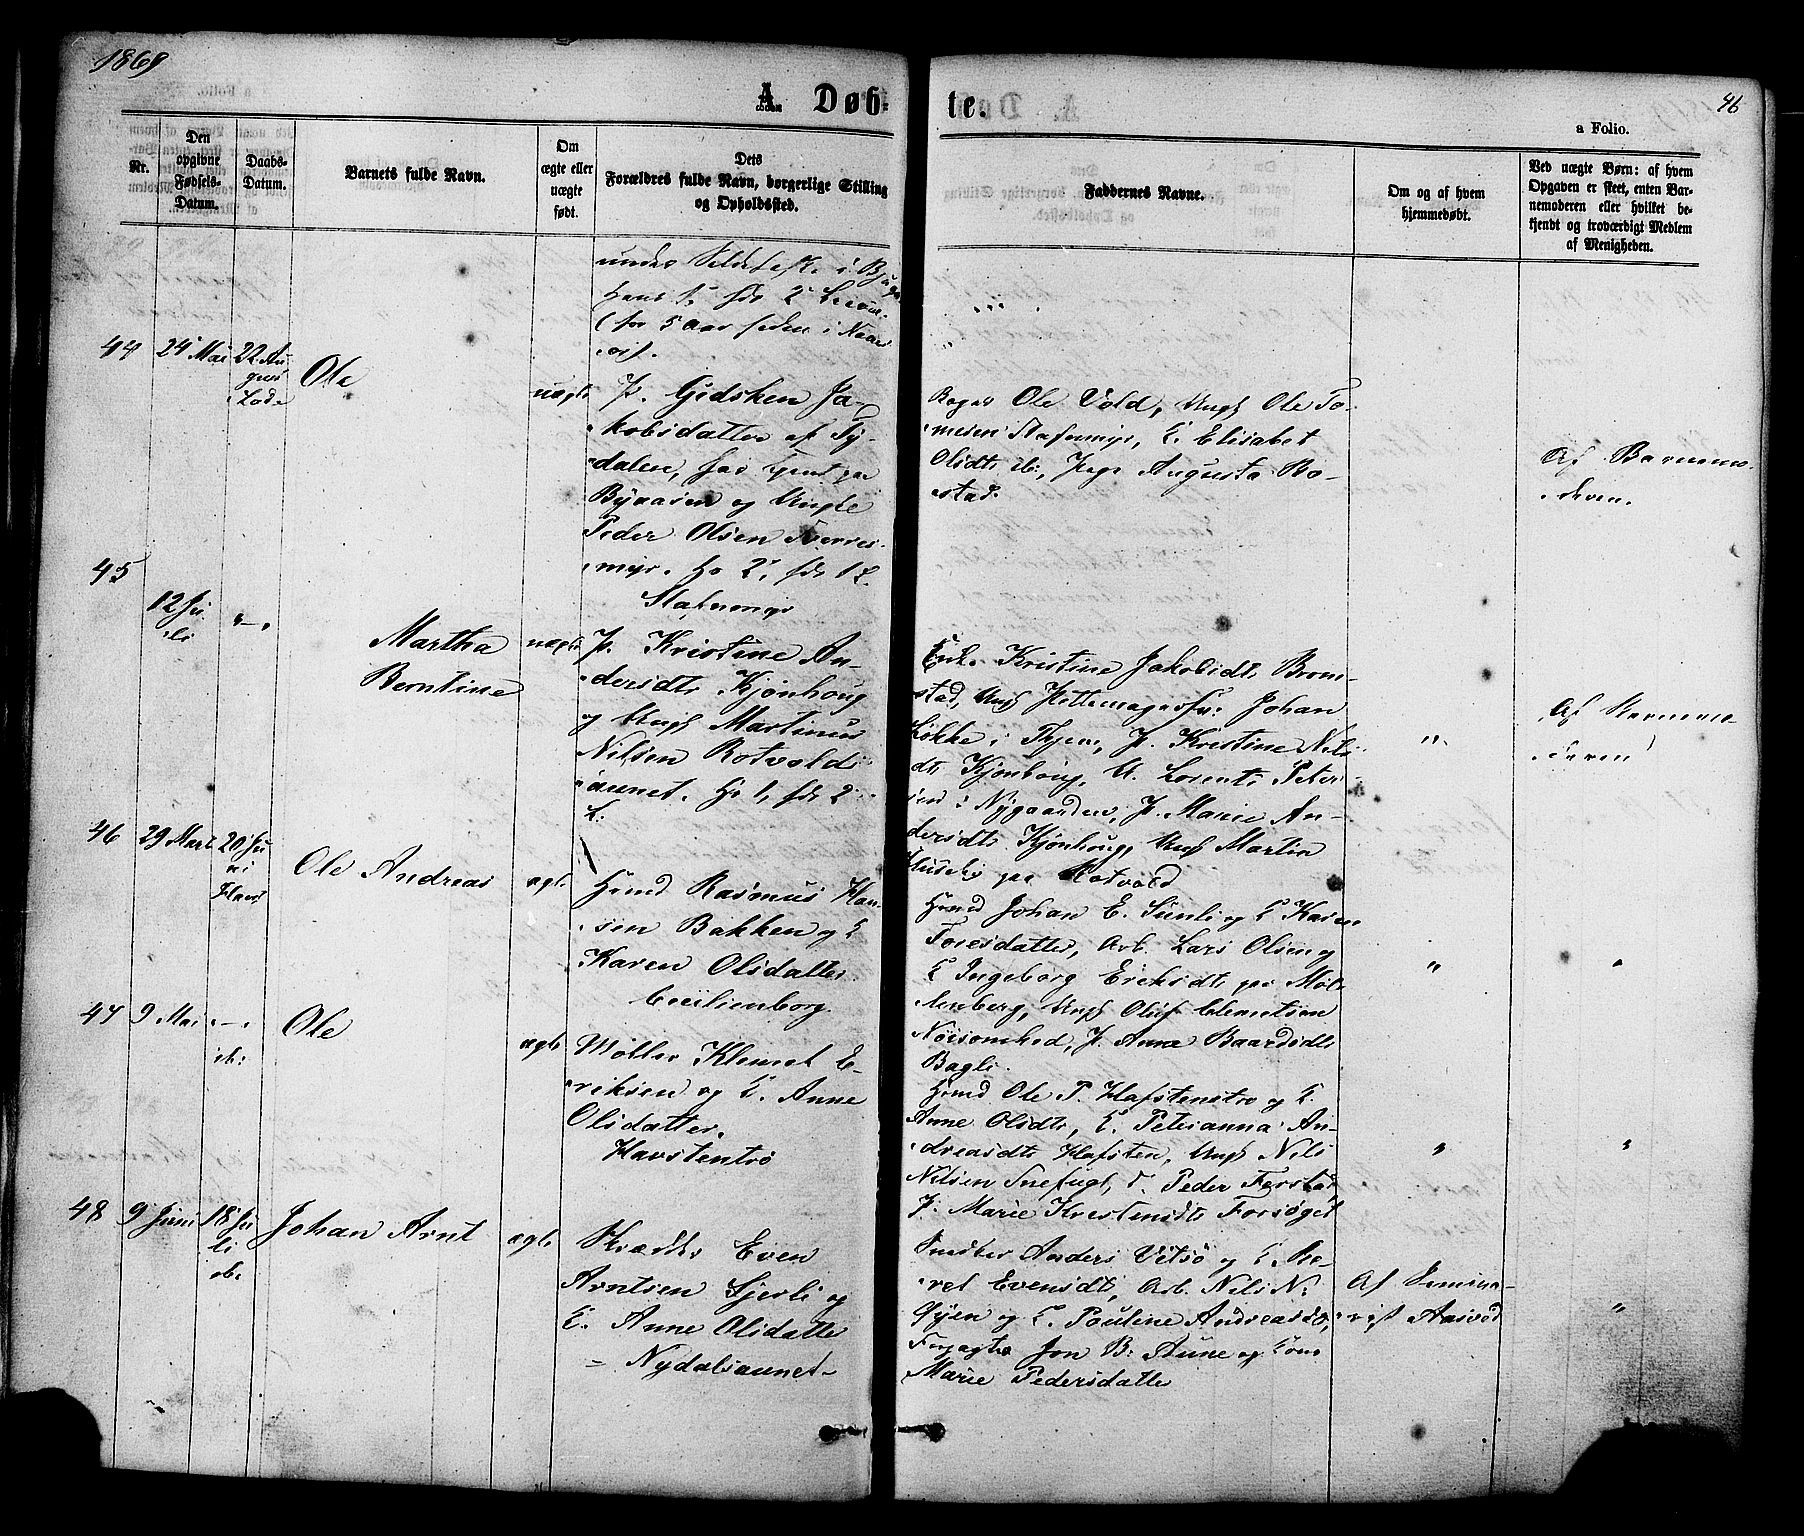 1869
46
A. Døb-
te.
a Folio.
Nr.
Den
opgivne
Fødsels-
Datum.
Daabs-
Datum.
Barnets fulde Navn.
Om
ægte eller
uægte
født.
Dets
Forældres fulde Navn, borgerlige Stilling
og Opholdssted.
Faddernes Navne.
Om og af hvem
hjemmedøbt.
Ved uægte Børn: af hvem
Opgaven er skeet, enten Bar-
nemoderen eller hvilket be-
kjendt og troværdigt Medlem
af Menigheden.
under i
Hans 1, fds 2
(for 5 aar siden i
44
24 Mai
22 Au-
gust
Lade
Ole
uægte
P. Gidsken Ja-
kobsdatter af Ty-
dalen, har tjent paa
Byaasen og Ungk
Peder Olsen
myr. Hs 2, fds 1 L.
Bager Ole Vold, Ungk Ole To-
mesen Stafnmyr, E. Elisabet
Olsdt ib:, Augusta Ro-
stad.
Af Barnemo-
deren.
45
12 Ju-
li
"—"
Martha
Berntine
uægte
P. Kristine An-
dersdt Kjønhoug
og Ungk Martinus
Nilsen Rotvolds-
aunet. Hs 1, fds 2
L:
Enk. Kristine Jakobsdt Brom-
stad, Ungk Johan
Løkke i Thjem, P. Kristine Nils-
dt Kjønhoug, U. Lorents Peter-
sen i Nygaarden, P. Marie An-
dersdt Kjønhoug, Ungk Martin
paa Rotvold
"
Af Barnemo-
deren
46
29 Mart
20 Ju-
ni
Havs
Ole Andreas
ægte
Hmd Rasmus Han-
sen Bakken og E
Karen Olsdatter
Ceciliienborg.
Hmd Johan E. Sunli og E Karen
Toresdatter, Arb. Lars Olsen og
E Ingeborg Eriksdt paa Møl-
lenberg, Ungk Oluf Clemetsen
Nøisomhed, P. Anne Baardsdt
Bagli.
"
"
47
9 Mai
"—"
ib:
Ole
ægte
Møller Klemet E-
riksen og E. Anne
Olsdatter.
Havstentrø
Hmd Ole P. Hafstentrø og E.
Anne Olsdt, E. Petrianna An-
dreasdt Hafsten, Ungk Nils
Nilsen Snefugl, d. Peder Ferstad,
P. Marie Kristensdt Forsøget
"
"
48
9 Juni
18 Ju-
li
ib.
Johan Arnt
ægte
Skrædder Even
Arntsen Sjerli og
E. Anne Olsdatter
– Nydalsaunet –
Snedker Anders Vitsø og E. Be-
ret Evensdt, Arb. Nils N.
Øyen og E. Pauline Andreasdt,
Forpagter Jon B. Aune og Kone
Marie Pedersdatter
Af Semina-
rist Aasved
"